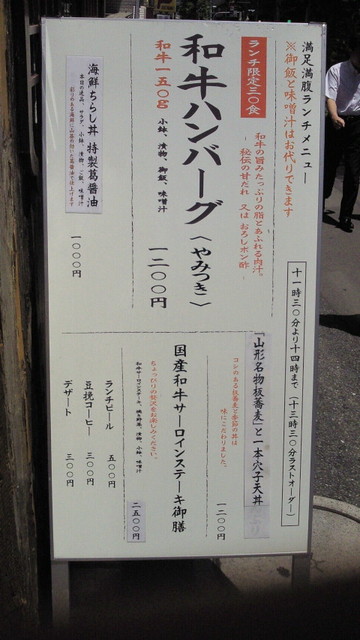 満足満腹ランチメニュー
※御飯と味噌汁はお代りできます
十一時三〇分より十四時まで(十三時三〇分ラストオーダー)
ランチ限定三〇食
和牛の旨みたっぷりの脂とあふれる肉汁。
秘伝の甘だれ 又は おろしポン酢
和牛ハンバーグ〈やみつき〉
和牛一五〇g 小鉢、漬物、御飯、味噌汁
一二〇〇円
海鮮ちらし丼 特製葛醤油
一〇〇〇円
「山形名物板蕎麦」と一本穴子天丼
コシのある板蕎麦と季節の丼は
味にこだわりました。
一二〇〇円
国産和牛サーロインステーキ御膳
ちょっぴり贅沢をお楽しみください。
二五〇〇円
ランチビール 五〇〇円
豆挽コーヒー 三〇〇円
デザート 三〇〇円